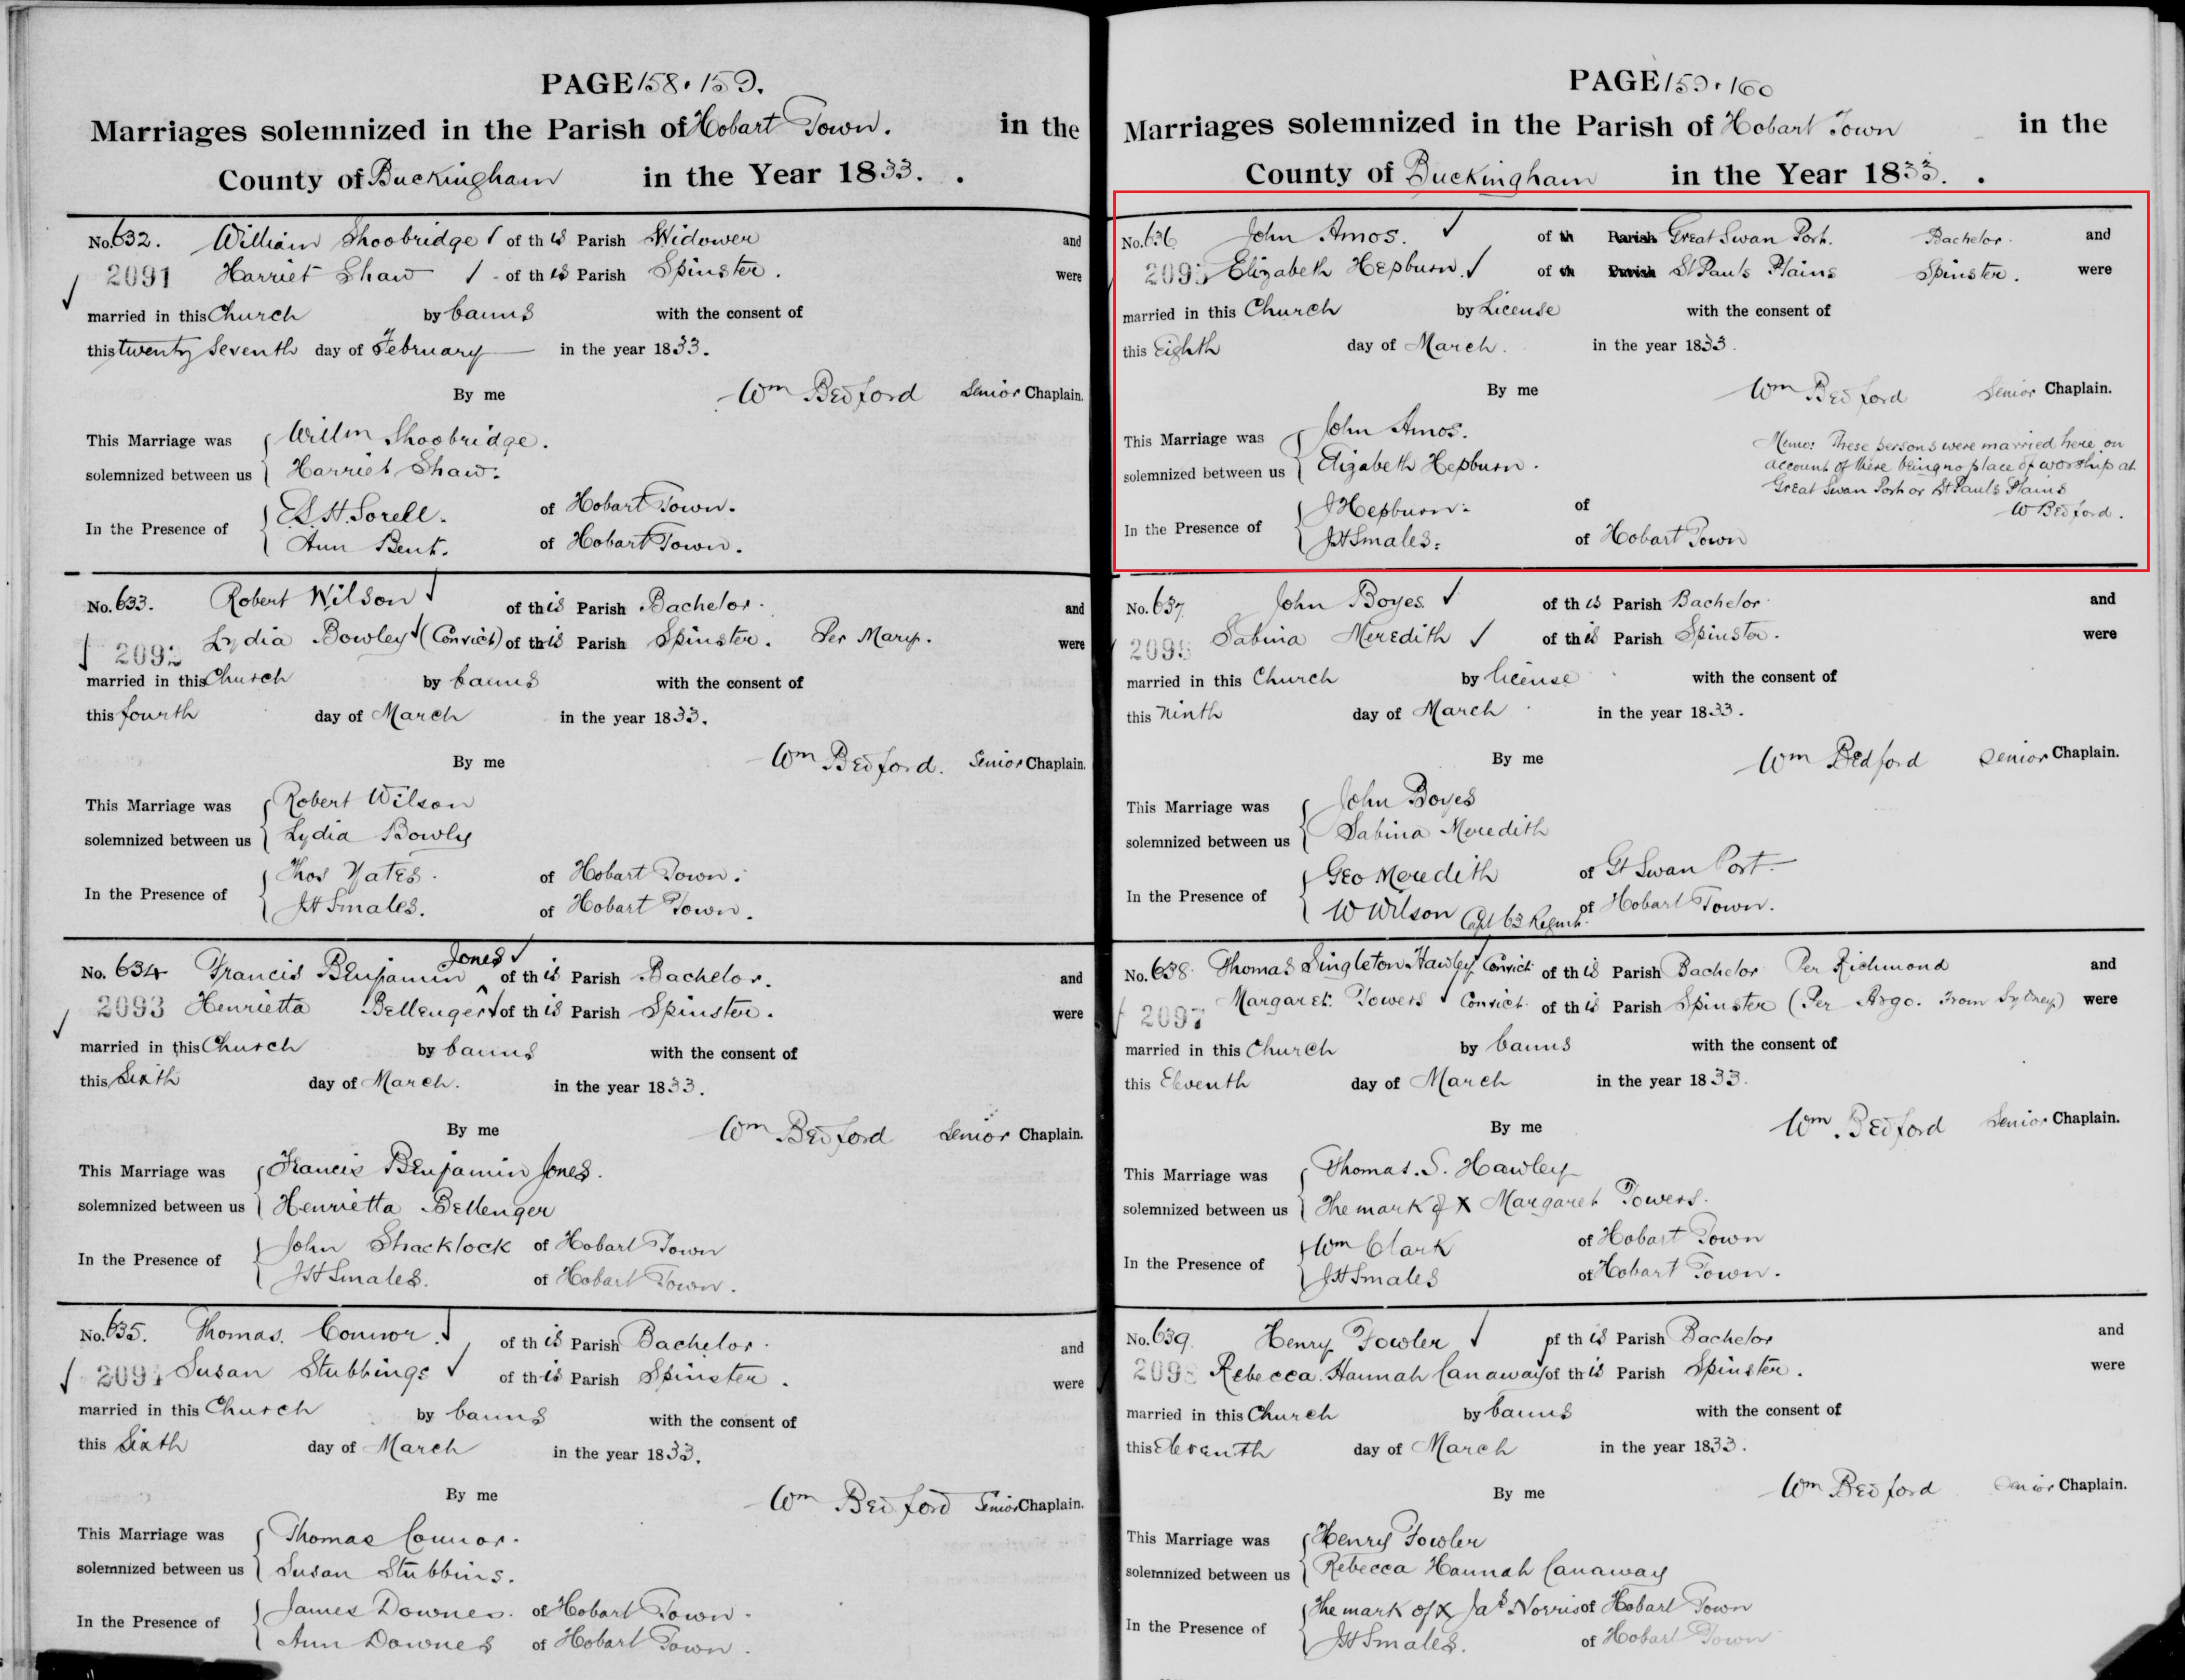 PAGE 158 · 159.
Marriages solemnized in the Parish of Hobart Town. in the
County of Buckingham in the Year 1833. .
No. 632. William Shoobridge of this Parish Widower and
2091 Harriet Shaw of this Parish Spinster. were
married in this Church by banns with the consent of
this twenty seventh day of February in the year 1833.
By me Wm Bedford Senior Chaplain.
This Marriage was Willm Shoobridge.
solemnized between us Harriet Shaw.
In the Presence of E.S.H. Sorell. of Hobart Town.
Ann Bent. of Hobart Town.
No. 633. Robert Wilson of this Parish Bachelor. and
2092 Lydia Bowley (Convict) of this Parish Spinster. Per Mary. were
married in this Church by banns with the consent of
this fourth day of March in the year 1833.
By me Wm Bedford. Senior Chaplain.
This Marriage was Robert Wilson
solemnized between us Lydia Bowly
In the Presence of Thos Yates. of Hobart Town.
JH Smales. of Hobart Town.
No. 634 Francis Benjamin Jones of this Parish Bachelor. and
2093 Henrietta Bellenger of this Parish Spinster. were
married in this Church by banns with the consent of
this Sixth day of March. in the year 1833.
By me Wm Bedford Senior Chaplain.
This Marriage was Francis Benjamin Jones.
solemnized between us Henrietta Bellenger
In the Presence of John Shacklock of Hobart Town
JH Smales. of Hobart Town.
No. 635. Thomas Connor. of this Parish Bachelor. and
2094 Susan Stubbings of this Parish Spinster. were
married in this Church by banns with the consent of
this Sixth day of March in the year 1833.
By me Wm Bedford Senior Chaplain.
This Marriage was Thomas Connor.
solemnized between us Susan Stubbins.
In the Presence of James Downes. of Hobart Town.
Ann Downes of Hobart Town.
PAGE 159 · 160
Marriages solemnized in the Parish of Hobart Town in the
County of Buckingham in the Year 1833. .
No. 636 John Amos. of th Parish Great Swan Port. Bachelor. and
2095 Elizabeth Hepburn. of th Parish St Pauls Plains Spinster. were
married in this Church by License with the consent of
this Eighth day of March. in the year 1833.
By me Wm Bedford Senior Chaplain.
This Marriage was John Amos.
solemnized between us Elizabeth Hepburn.
Memo: These persons were married here on
account of there being no place of worship at
Great Swan Port or St Pauls Plains
W Bedford.
In the Presence of J Hepburn. of
JH Smales. of Hobart Town
No. 637. John Boyes. of this Parish Bachelor. and
2096 Sabina Meredith of this Parish Spinster. were
married in this Church by license with the consent of
this Ninth day of March in the year 1833.
By me Wm Bedford Senior Chaplain.
This Marriage was John Boyes
solemnized between us Sabina Meredith
In the Presence of Geo Meredith of Gt Swan Port
W Wilson Capt 63 Regmt. of Hobart Town.
No. 638. Thomas Singleton Hawley Convict of this Parish Bachelor Per Richmond and
2097 Margaret Towers Convict of this Parish Spinster (Per Argo. from Sydney) were
married in this Church by banns with the consent of
this Eleventh day of March in the year 1833.
By me Wm Bedford Senior Chaplain.
This Marriage was Thomas. S. Hawley
solemnized between us The mark of X Margaret Towers.
In the Presence of Wm Clark of Hobart Town
JH Smales of Hobart Town.
No. 639. Henry Fowler of this Parish Bachelor and
2098 Rebecca Hannah Canaway of this Parish Spinster. were
married in this Church by banns with the consent of
this Eleventh day of March in the year 1833.
By me Wm Bedford Senior Chaplain.
This Marriage was Henry Fowler
solemnized between us Rebecca Hannah Canaway
In the Presence of The mark of X Jas Norris of Hobart Town
JH Smales. of Hobart Town